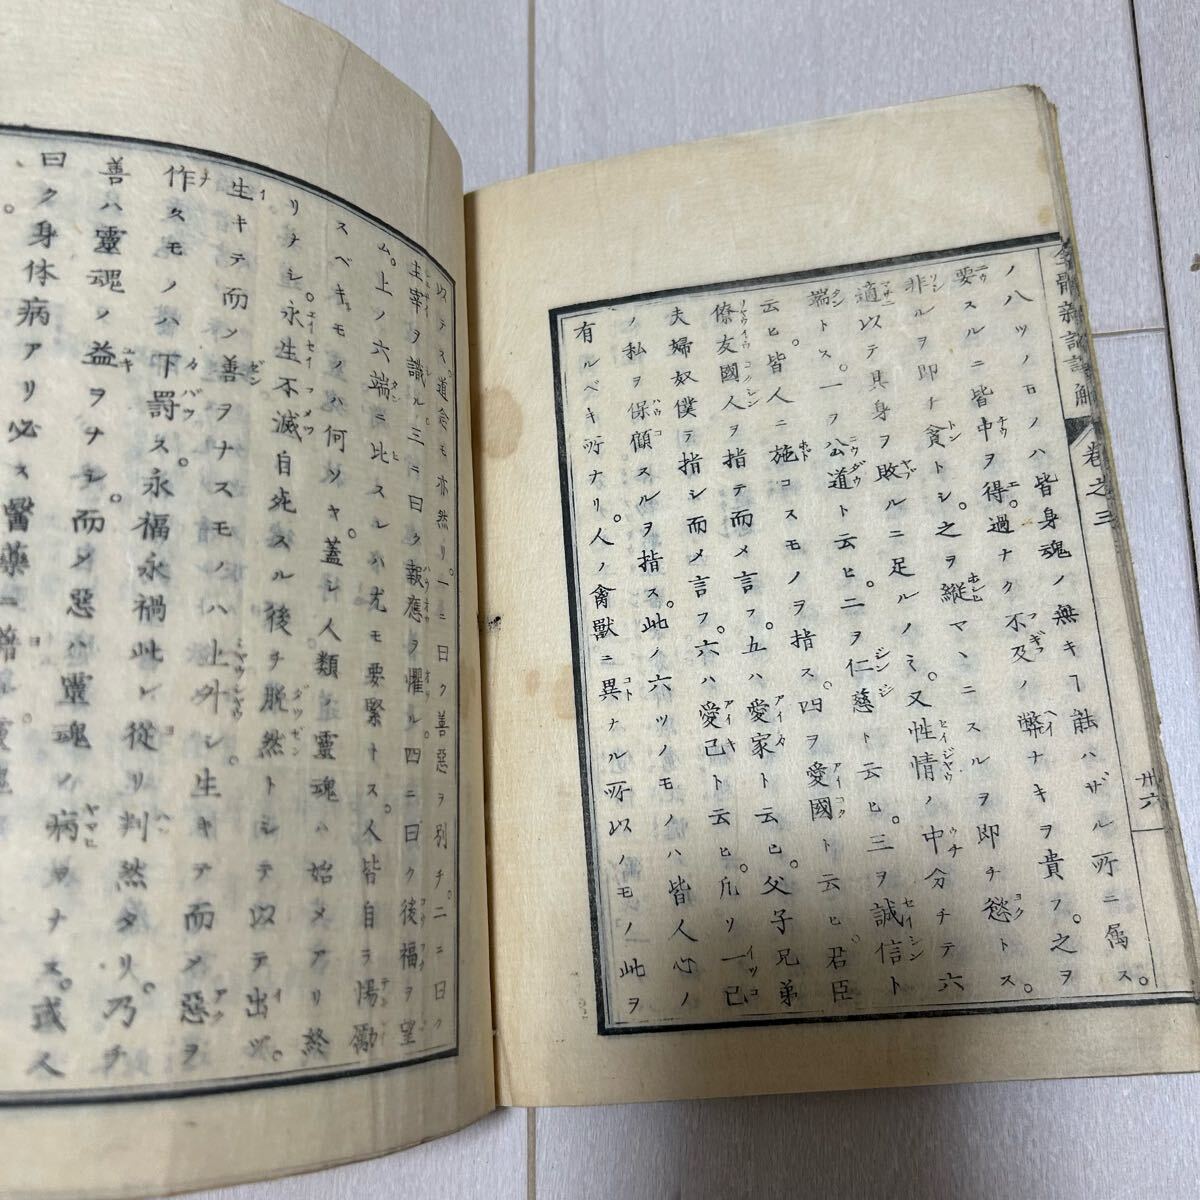 全體新論譯解 卷之三 廿六
ノ八ツノモノハ皆身魂ノ無キヿ能ハザル所ニ属ス。
要スルニ皆中ヲ得。過ナク不及ノ弊ナキヲ貴フ。之ヲ
非ルヲ即チ貪トシ。之ヲ縱マヽニスルヲ即チ慾トス。
適以テ其身ヲ敗ルニ足ルノミ。又性情ノ中分チテ六
端トス。一ヲ公道ト云ヒ。二ヲ仁慈ト云ヒ。三ヲ誠信ト
云ヒ。皆人ニ施コスモノヲ指ス。四ヲ愛國ト云ヒ。君臣
僚友國人ヲ指テ而メ言フ。五ハ愛家ト云ヒ。父子兄弟
夫婦奴僕ヲ指シ而メ言フ。六ハ愛己ト云ヒ。凡ソ一己
ノ私ヲ保顧スルヲ指ス。此ノ六ツノモノハ皆人心ノ
有ルベキ所ナリ人ノ禽獸ニ異ナル所以ノモノ此ヲ
以テス。道念モ亦然リ。一ニ曰ク善惡ヲ別チ。二ニ曰ク
主宰ヲ識ル。三ニ曰ク報應ヲ懼ル。四ニ曰ク後福ヲ望
ム。上ノ六端ニ比スレハ尤モ要緊トス。人皆自ラ惕勵
スベキモノハ何ソヤ。蓋シ人類ノ靈魂ハ始メアリ終
リナシ。永生不滅自死スル後チ脱然トシテ以テ出ツ。
生キテ而ノ善ヲナスモノハ上升シ。生キテ而メ惡ヲ
作スモノハ下罰ス。永福永禍此レ從リ判然タリ。乃チ
善ハ靈魂ノ益ヲナシ。而メ惡ハ靈魂ノ病ヲナス。或人
曰ク身体病アリ必ス醫藥ニ藉